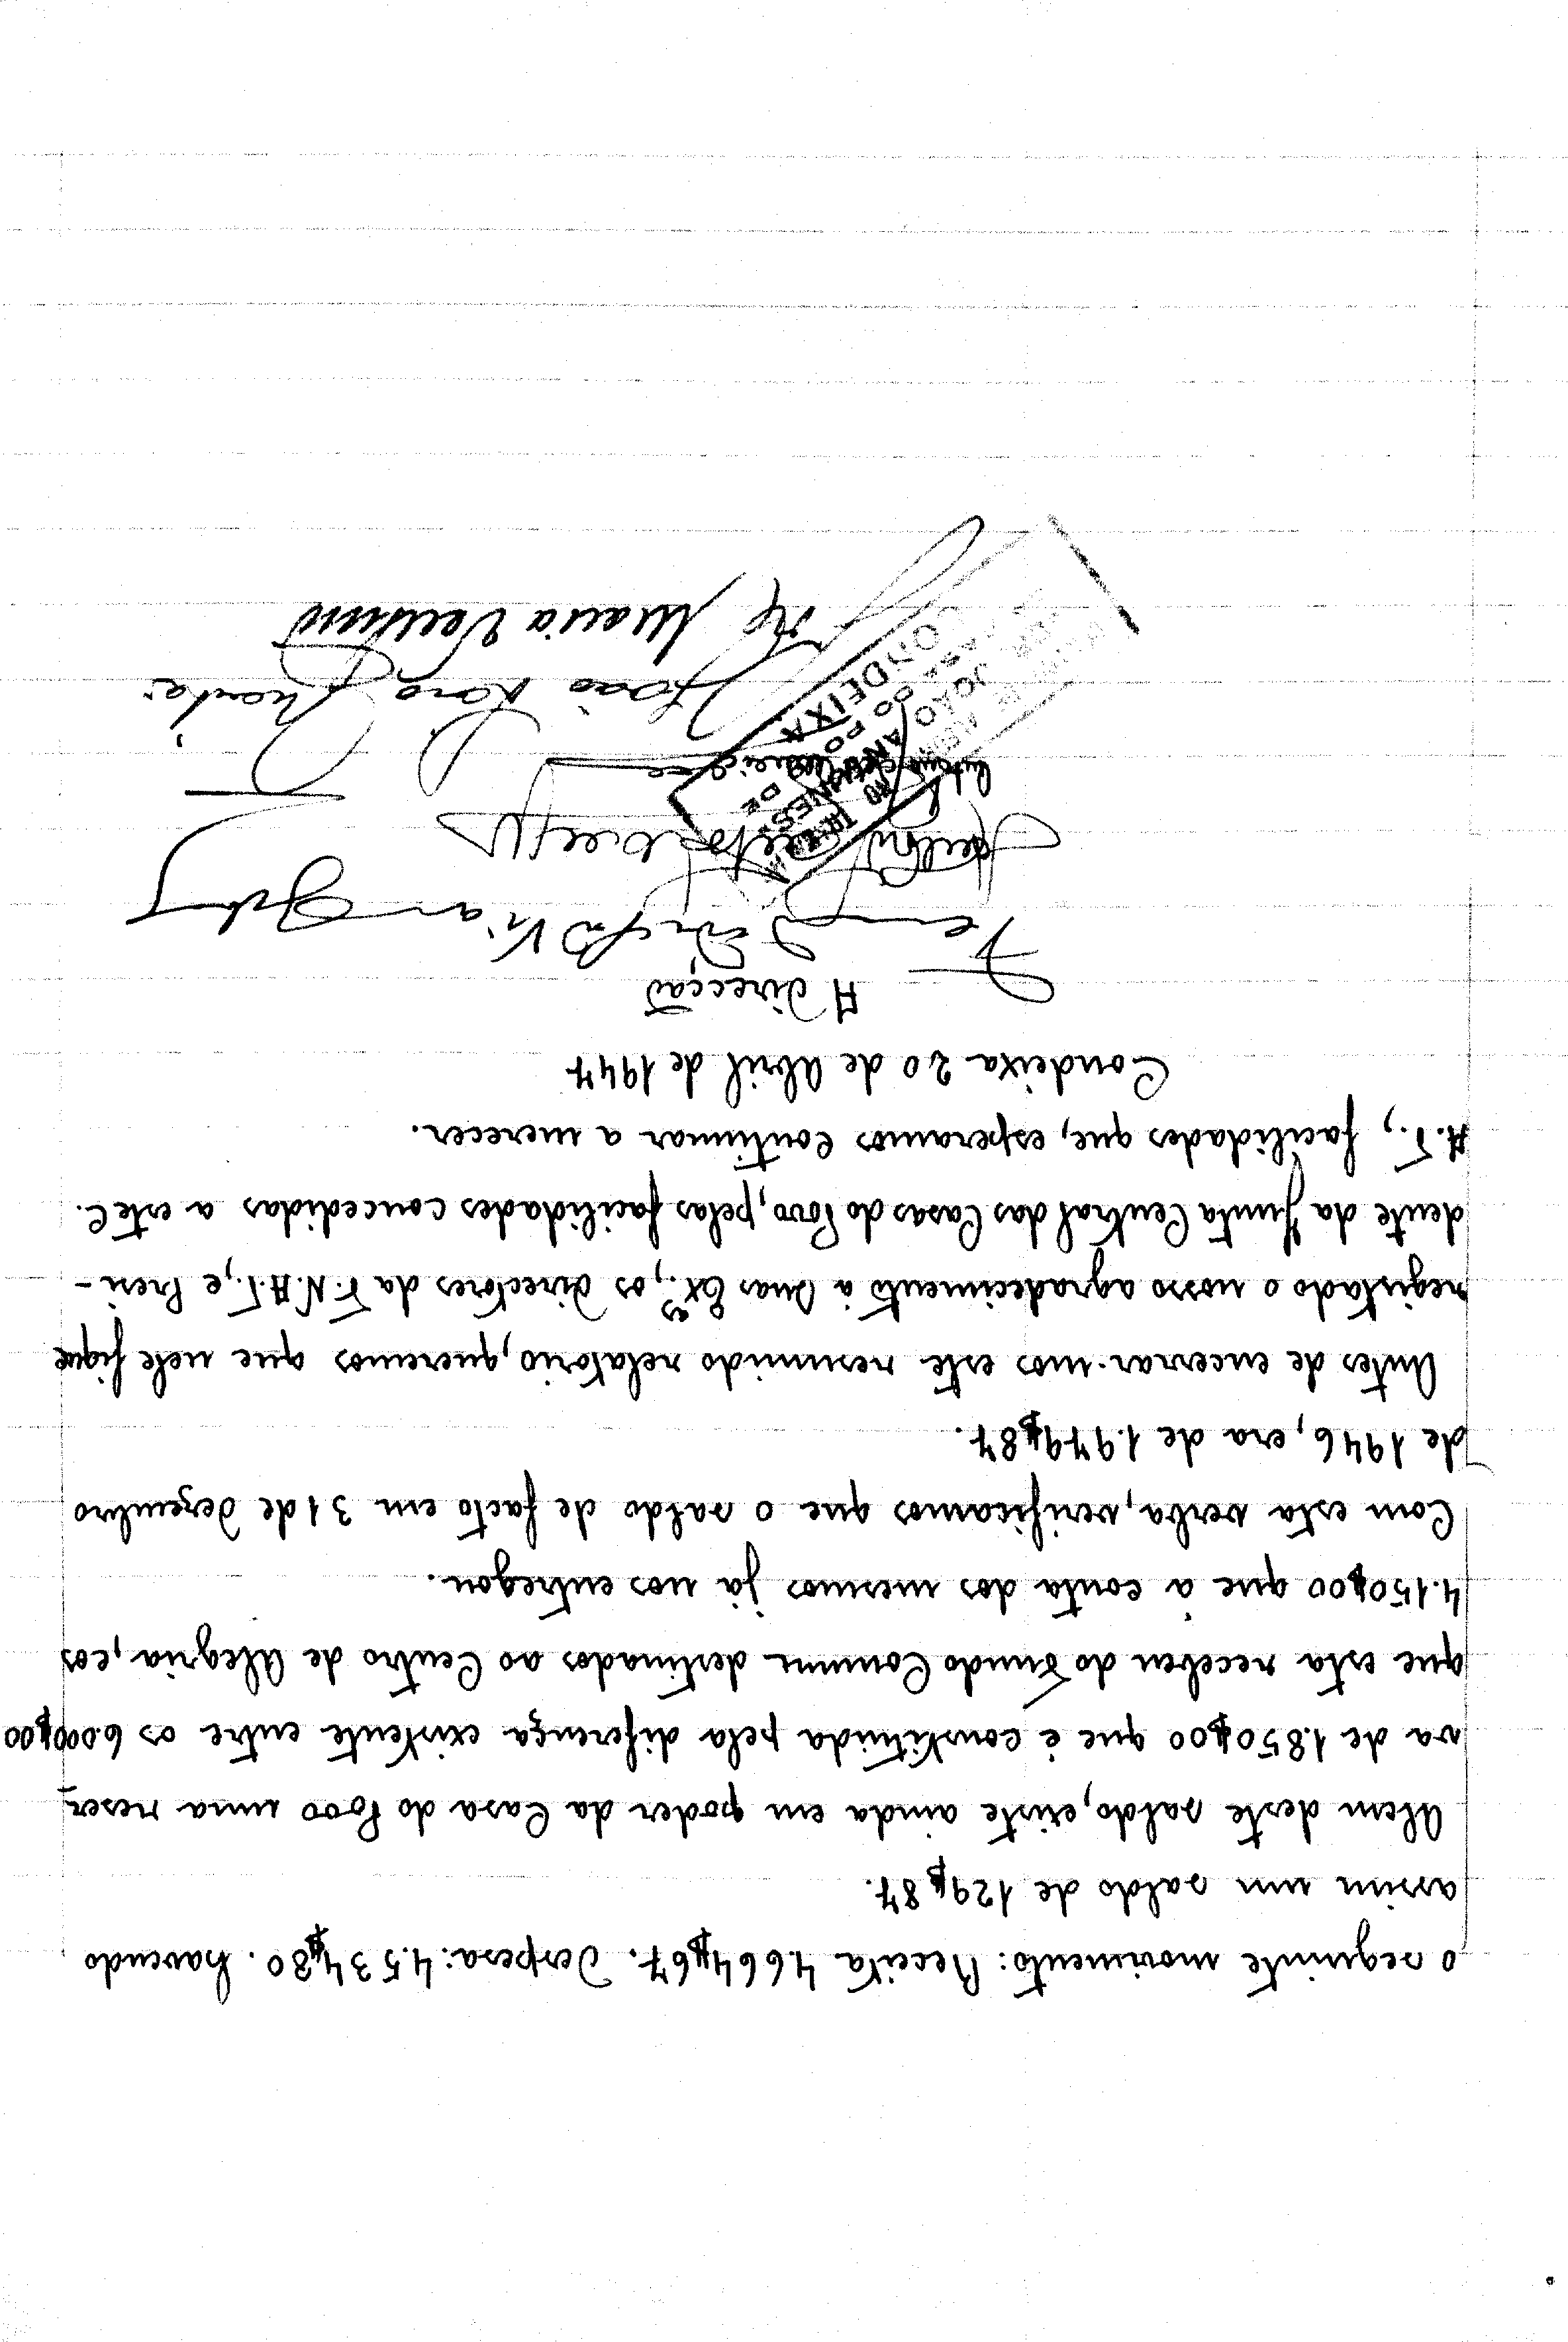 o seguinte movimento: Receita 4.664$67. Despesa: 4.534$80. havendo
assim um saldo de 129$87.
Alem deste saldo, existe ainda em poder da Casa do Povo uma reser-
va de 1.850$00 que é constituida pela diferença existente entre os 6.000$00
que esta recebeu do Fundo Comum destinados ao Centro de Alegria, e os
4.150$00 que à conta dos mesmos já nos entregou.
Com esta verba, verificamos que o saldo de facto em 31 de Dezembro
de 1946, era de 1.979$87.
Antes de encerrar-mos este resumido relatorio, queremos que nele fique
registado o nosso agradecimento à Suas Exᵃˢ., os Directores da F.N.A.T., e Presi-
dente da Junta Central das Casas do Povo, pelas facilidades concedidas a este C.
A.T., facilidades que, esperamos continuar a merecer.
Condeixa 20 de Abril de 1947
A Direcção
João
Maria
DO POVO
CONDEIXA